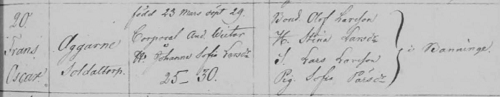 20.
Frans
Oscar
Aggarne
Soldattorp.
född 23 Mars dopt 29
Corporal And. Victor
H. Johanna Sofia Larsd:r
25 – 30.
Bond. Olof Larsson
H. Stina Larsd:r
D. Lars Larsson
Pig. Sofia
i Banninge.